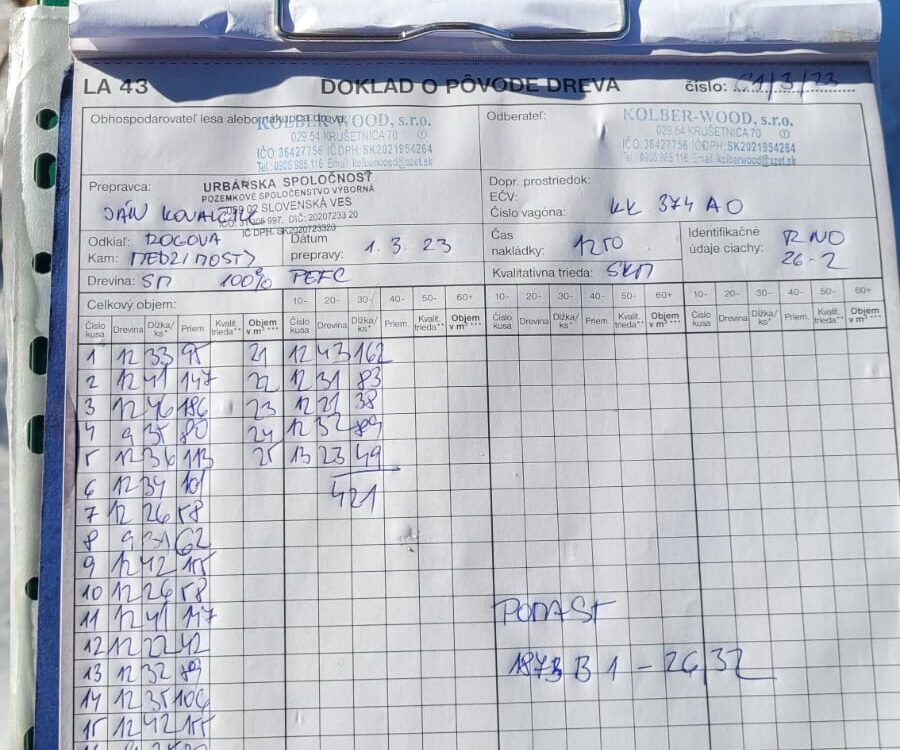 LA 43 DOKLAD O PÔVODE DREVA číslo: 01/3/23
Obhospodarovateľ lesa alebo nákupca dreva:
KOLBER-WOOD, s.r.o.
029 54 KRUŠETNICA 70
IČO: 36427756 IČ DPH: SK2021954264
Tel.: 0905 985 116 Email: kolberwood@azet.sk
Odberateľ:
KOLBER-WOOD, s.r.o.
029 54 KRUŠETNICA 70
IČO: 36427756 IČ DPH: SK2021954264
Tel.: 0905 985 116 Email: kolberwood@azet.sk
Prepravca:
URBÁRSKA SPOLOČNOSŤ
POZEMKOVÉ SPOLOČENSTVO VÝBORNÁ
059 02 SLOVENSKÁ VES
997, DIČ: 20207233 20
IČ DPH: SK2020723320
JÁN
Dopr. prostriedok:
EČV:
Číslo vagóna: KK 374 AO
Odkiaľ: ROGOVA
Kam: MEDZI MOSTY
Dátum prepravy: 1. 3. 23
Čas nakládky: 1250
Identifikačné údaje ciachy: RNO 26-2
Drevina: SM 100% PEFC
Kvalitatívna trieda: SKM
Celkový objem: 10- 20- 30- 40- 50- 60+ 10- 20- 30- 40- 50- 60+ 10- 20- 30- 40- 50- 60+
Číslo kusa Drevina Dĺžka/ks* Priem. Kvalit. trieda** Objem v m³ *** Číslo kusa Drevina Dĺžka/ks* Priem. Kvalit. trieda** Objem v m³ *** Číslo kusa Drevina Dĺžka/ks* Priem. Kvalit. trieda** Objem v m³ *** Číslo kusa Drevina Dĺžka/ks* Priem. Kvalit. trieda** Objem v m³ ***
1 12 33 95 21 12 43 162
2 12 41 147 22 12 31 83
3 12 46 186 23 12 21 38
4 9 35 80 24 12 32 89
5 12 36 113 25 13 23 49
6 12 34 101 421
7 12 26 58
8 9 31 62
9 12 42 155
10 12 26 58
11 12 41 147
12 12 22 42
13 12 32 89
14 12 35 106
15 12 42 155
1873 B 1 - 26/32